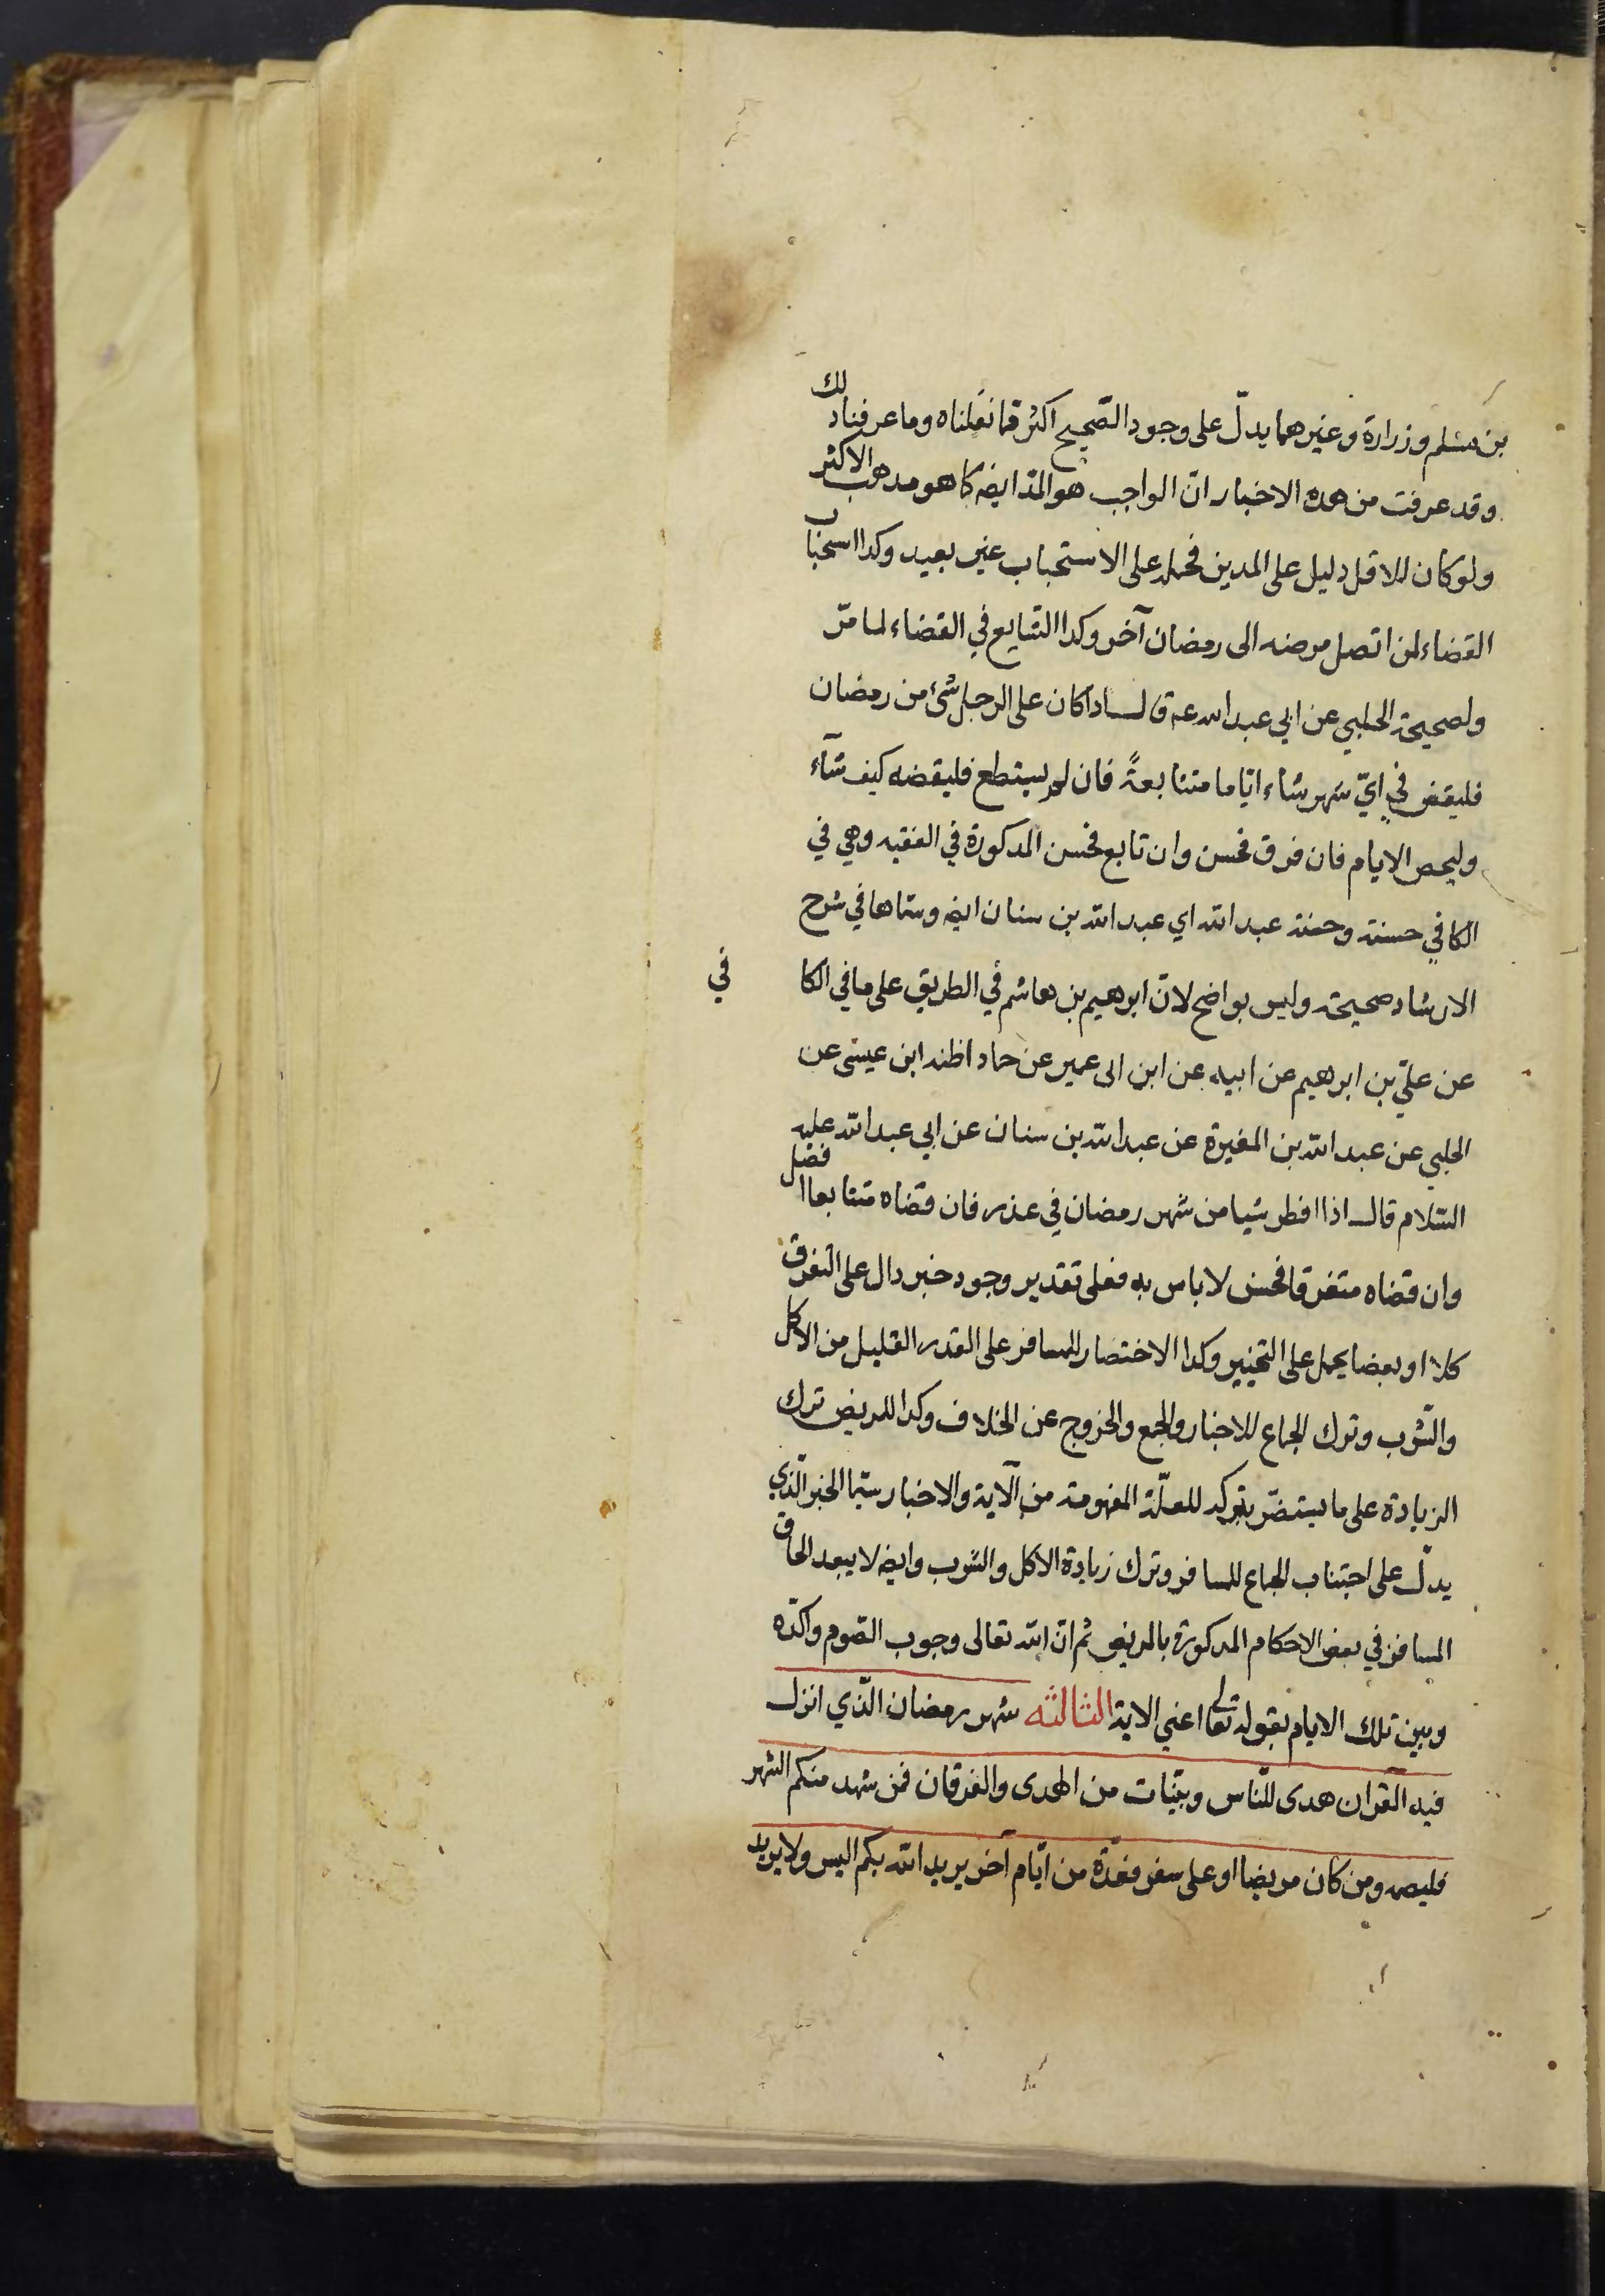 بن مسلم وزرارة وغيرهما يدلّ على وجود الصّحيح اكثر مما نقلناه وما عرفنا ذلك
وقد عرفت من هذه الاخبار انّ الواجب هو المدّ ايضه كما هو مذهب الاكثر
ولو كان للاقل دليل على المدين فحمله على الاستحباب غير بعيد وكذا استحباب
القضاء لمن اتصل مرضه الى رمضان آخر وكذا التتابع في القضاء لما مرّ
ولصحيحة الحلبي عن ابي عبد الله عه قال اذا كان على الرجل شئ من رمضان
فليقض في ايّ شهر شاء ايّاما متتابعةً فان لم يستطع فليقضه كيف شآء
وليحص الايام فان فرق فحسن وان تابع فحسن المذكورة في الفقيه وهي في
الكافي حسنة وحسنة عبد الله اي عبد الله بن سنان ايضه وسمّاها في شرح
الارشاد صحيحة وليس بواضح لانّ ابرهيم بن هاشم في الطريق على ما في الكا في
عن عليّ بن ابرهيم عن ابيه عن ابن ابى عمير عن حماد اظنه ابن عيسى عن
الحلبي عن عبد الله بن المغيرة عن عبد الله بن سنان عن ابي عبد الله عليه
السّلام قال اذا افطر شيا من شهر رمضان في عذر فان قضاه متتابعا افضل
وان قضاه متفرقا فحسن لا باس به فعلى تقدير وجود خبر دال على التفرق
كلا او بعضا يحمل على التخيير وكذا الاختصار للمسافر على القدر القليل من الاكل
والشّرب وترك الجماع للاخبار والجمع والخروج عن الخلاف وكذا للمريض ترك
الزيادة على ما يستضرّ بتركه للعلّة المفهومة من الآية والاخبار سيّما الخبر الّذي
يدلّ على اجتناب الجماع للمسافر وترك زيادة الاكل والشّرب وايضه لا يبعد الحاق
المسافر في بعض الاحكام المذكورة بالمريض ثم انّ الله تعالى وجوب الصّوم واكدّه
وبين تلك الايام بقوله تعالى اعني الاية الثالثه شهر رمضان الّذي انزل
فيه القران هدى للنّاس وبيّنات من الهدى والفرقان فمن شهد منكم الشهر
فليصمه ومن كان مريضا او على سفر فعدّة من ايّام آخر يريد الله بكم اليسر ولا يريد